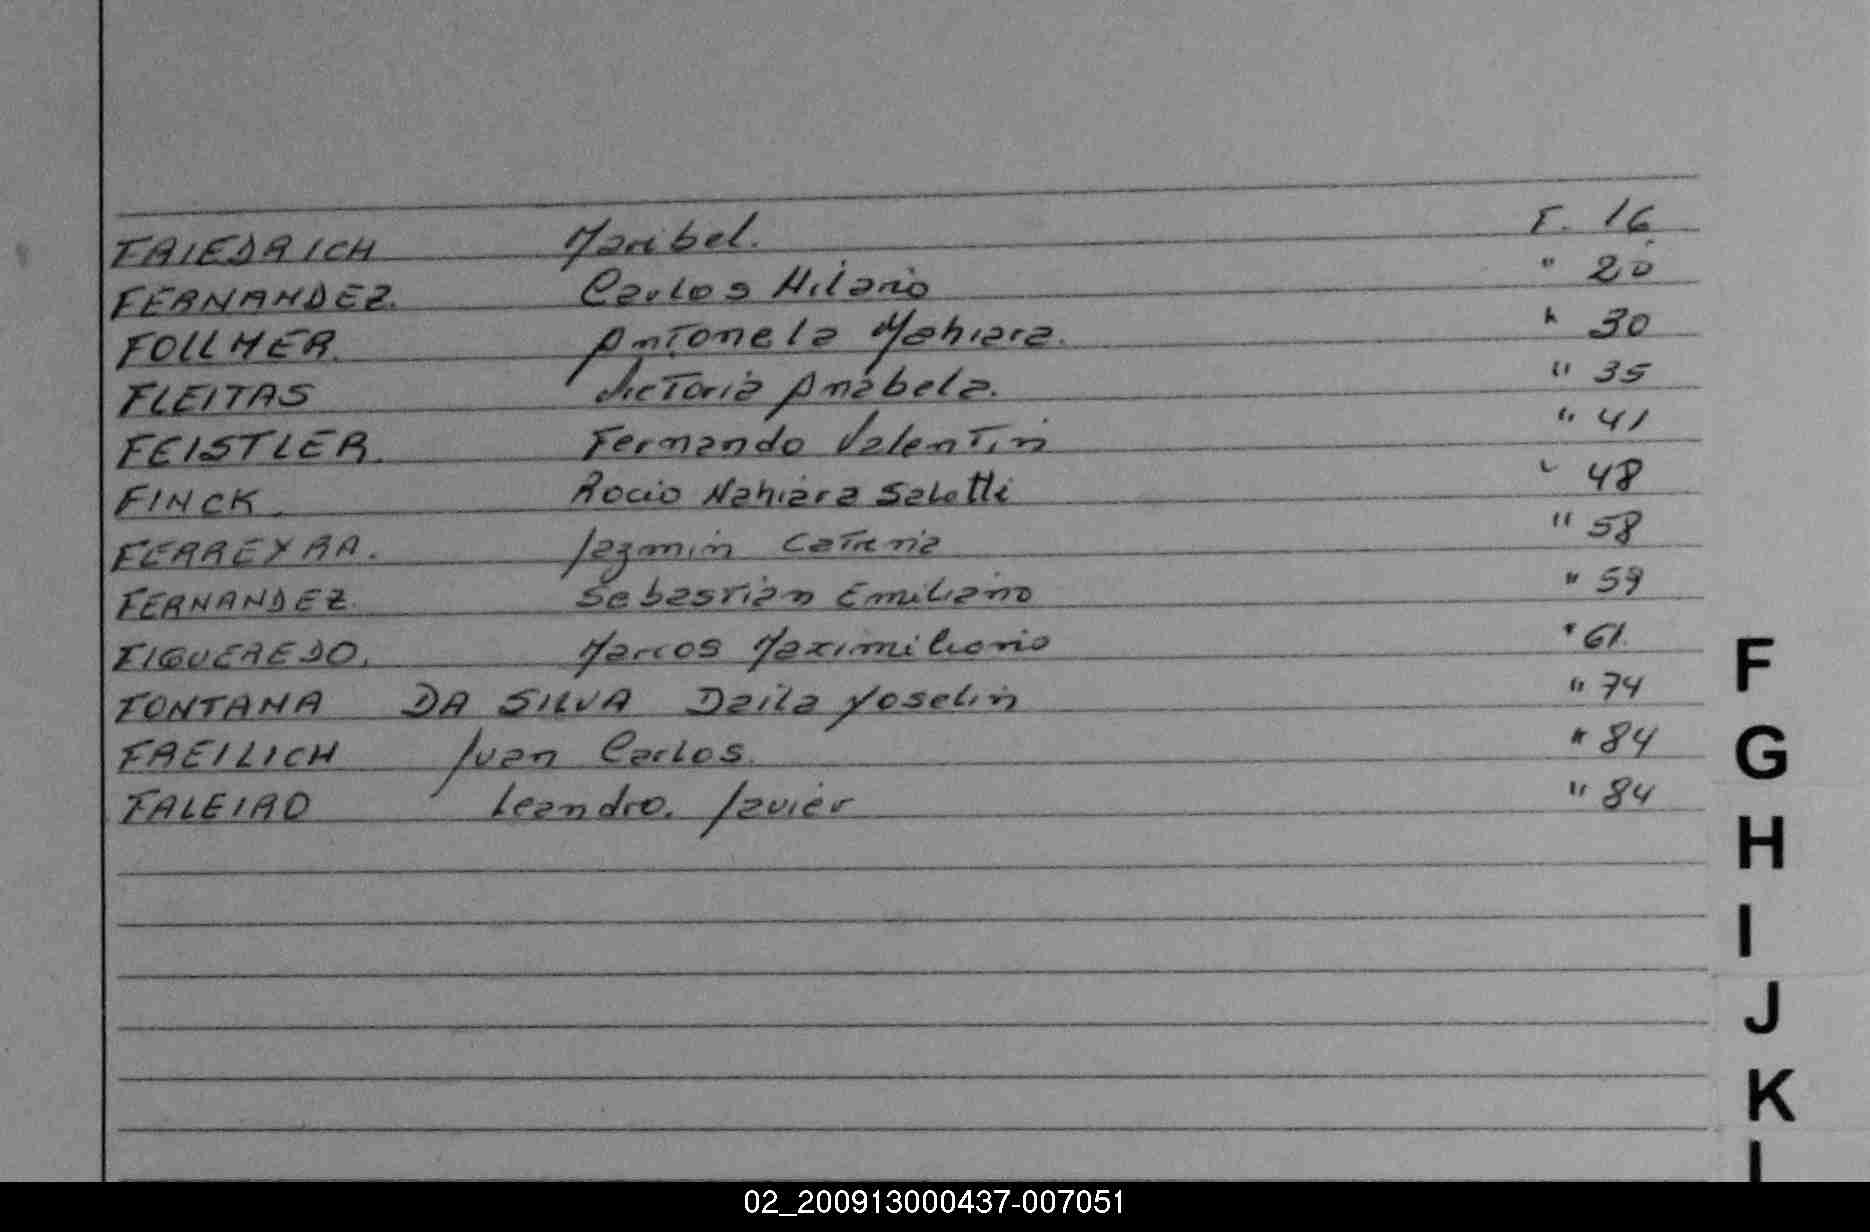 FRIEDRICH Maribel. F. 16
FERNANDEZ. Carlos Hilario " 20
FOLLMER Antonela Nahiara. " 30
FLEITAS Victoria Anabela. " 35
FEISTLER. Fernando Valentin " 41
FINCK. Rocio Nahiara Salotti " 48
FERREYRA. Jazmin " 58
FERNANDEZ. Sebastian Emiliano " 59
FIGUEREDO. Marcos Maximiliano " 61.
FONTANA DA SILVA Daila Yoselin " 74
FREILICH Juan Carlos. " 84
FALEIRO Leandro. Javier " 84
F
G
H
I
J
K
L
02_200913000437-007051